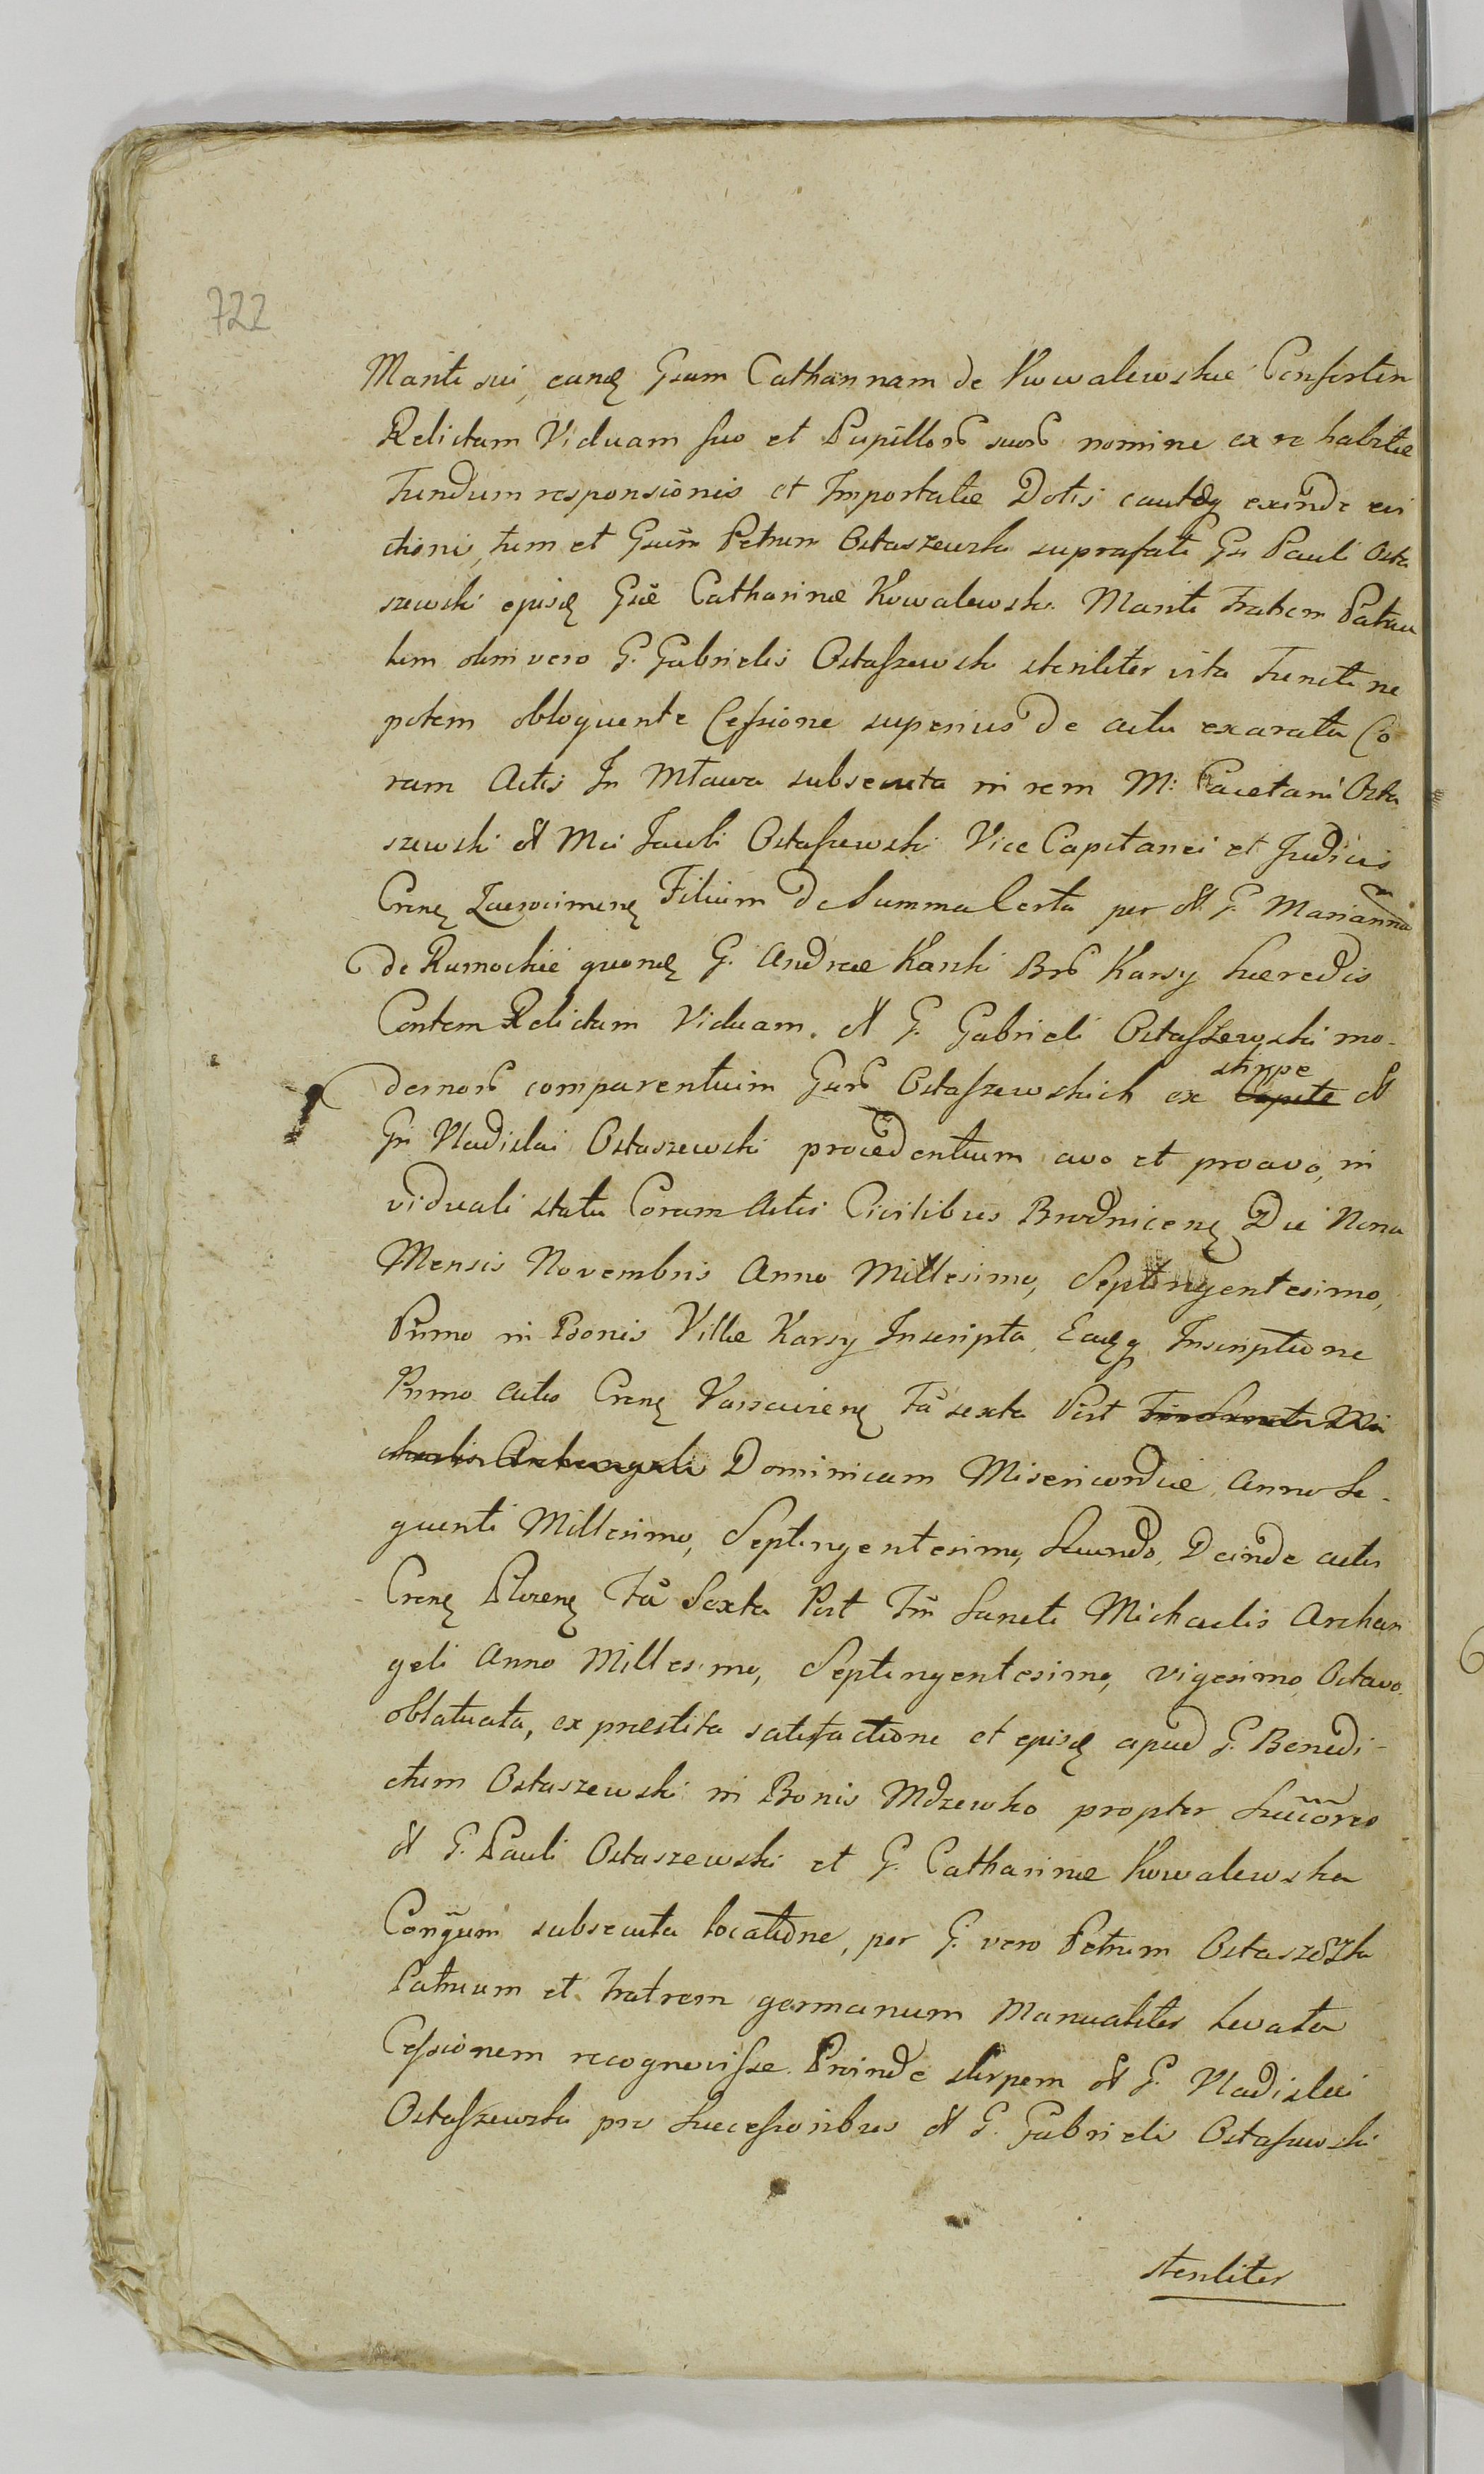 722
Mariti sui, eandę Gsam Catharinam de Kowalewskie Consortem
Relictam Viduam suo et Pupillorb suorb nomine ex re habitæ
Fundum responsionis et Importatæ Dotis cautæq exinde evi
ctionis, tum et Gsum Petrum Ostaszewski suprafati Gsi Pauli Osta
szewski ejusdę Gsæ Catharinæ Kowalewska Mariti Fratrem Patru
lem olim vero G. Gabrielis Ostaszewski steriliter vita Functi ne
potem obloquente Cessione superius de actu exarata Co
ram Actis In Mława subsecuta in rem M: Caietani Osta
szewski olim Mci Pauli Ostaszewski Vice Capitanei et Judicis
Crenę Zawscimenę Filium de Summa Certa per ol G. Marianna
de Rumockie quondę G. Andreæ Karski Brb Karsy Hæredis
Contem Relictam Viduam. ol G. Gabrieli Ostaszewski mo-
dernorb comparentium Gsrb Ostaszewskich ex stirpe Capite ol
Gsi Vladislai Ostaszewski procedentium avo et proavo, in
viduali statu Coram Actis Civilibus Brodnicenę Die Nona
Mensis Novembris Anno Millesimo, Septingentesimo,
Primo in Bonis Villæ Karsy Inscripta, Eadęq Inscriptione
Primo Actis Crenę Varsavienę Fa sexta Post Fm Sancti Mi
chaelis Archangeli Dominicam Misericordiæ Anno Se-
quenti Millesimo, Septingentesimo, Secundo, Deinde actis
Crenę Plocenę Fa Sexta Post Fm Sancti Michaelis Archan
geli Anno Millesimo, Septingentesimo, vigesimo Octavo.
oblatuata, ex præstita satisfactione et ejusdę apud G. Benedi-
ctum Ostaszewski in Bonis Mdzewko propter Succores
ol G. Pauli Ostaszewski et G. Catharinæ Kowalewska
Congum subsecuta locatione, per G. vero Petrum Ostaszewski
Patruum et Fratrem germanum Manualiter levata
Cessionem recognovisse. Proinde stirpem ol G. Vladislai
Ostaszewski pro Successoribus ol G. Gabrielis Ostaszewski
steriliter